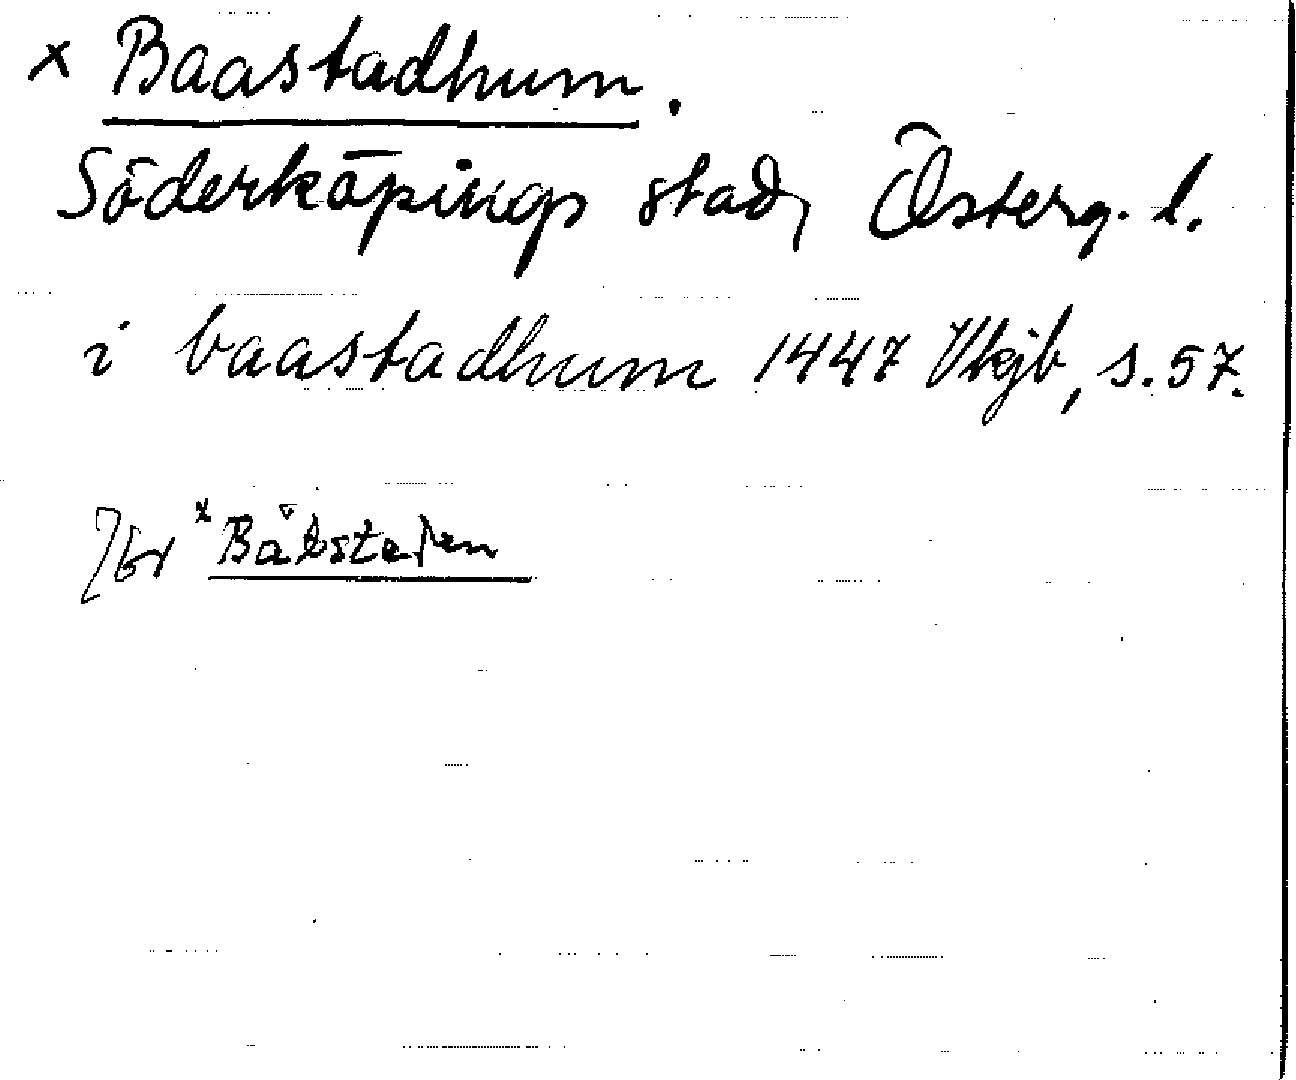 x Baastadhum.
Söderköpings stad, Österg. l.
i baastadhum 1447 Vkjb, s. 57.
x Båtstaden